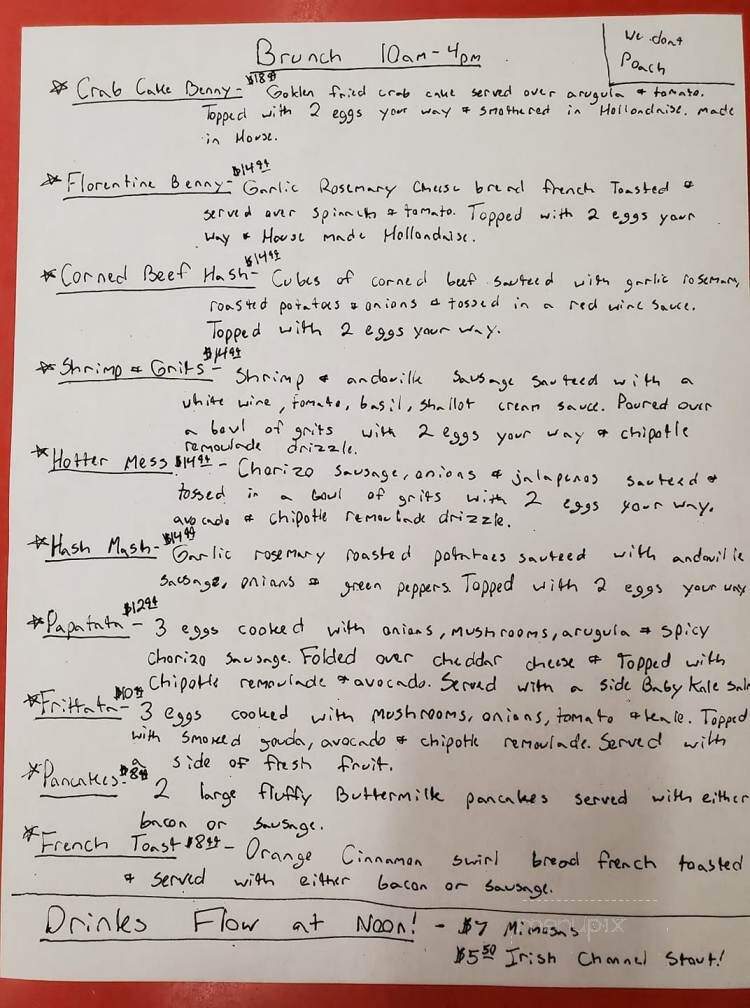 Brunch 10am-4pm
We dont
Poach
☆ Crab Cake Benny - Golden fried crab cake served over arugula & tomato.
Topped with 2 eggs your way & smothered in Hollondaise. made
in House.
☆ Florentine Benny - Garlic Rosemary Cheese bread french Toasted &
served over spinach & tomato. Topped with 2 eggs your
way & House made Hollondaise.
☆ Corned Beef Hash - Cubes of corned beef sauteed with garlic rosemary
roasted potatoes & onions & tossed in a red wine sauce.
Topped with 2 eggs your way.
☆ Shrimp & Grits - Shrimp & andouille sausage sauteed with a
white wine, tomato, basil, shallot cream sauce. Poured over
a bowl of grits with 2 eggs your way & chipotle
remoulade drizzle.
☆ Hotter Mess - Chorizo sausage, onions & jalapenos sauteed &
tossed in a bowl of grits with 2 eggs your way.
avocado & chipotle remoulade drizzle.
☆ Hash Mash - Garlic rosemary roasted potatoes sauteed with andouille
sausage, onions & green peppers. Topped with 2 eggs your way
☆ Papatata - 3 eggs cooked with onions, mushrooms, arugula & spicy
Chorizo sausage. Folded over cheddar cheese & Topped with
Chipotle remoulade & avocado. Served with a side Baby Kale
☆ Frittata - 3 eggs cooked with mushrooms, onions, tomato & kale. Topped
with smoked gouda, avocado & chipotle remoulade. Served with
a side of fresh fruit.
☆ Pancakes - 2 large fluffy Buttermilk pancakes served with either
bacon or sausage.
☆ French Toast - Orange Cinnamon swirl bread french toasted
& served with either bacon or sausage.
Drinks Flow at Noon! - $7 Mimosas
$5 50 Irish Channel Stout!
menupix